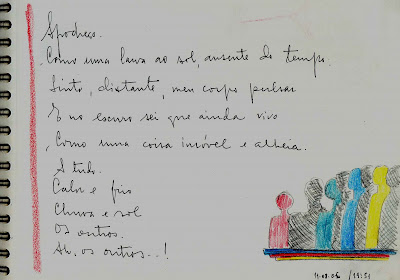 Apodreço.
Como uma larva ao sol, ausente do tempo.
Sinto, distante, meu corpo pulsar
E no escuro sei que ainda vivo
Como uma coisa imóvel e alheia.
A tudo.
Calor e frio
Chuva e sol
Os outros.
Ah, os outros...!